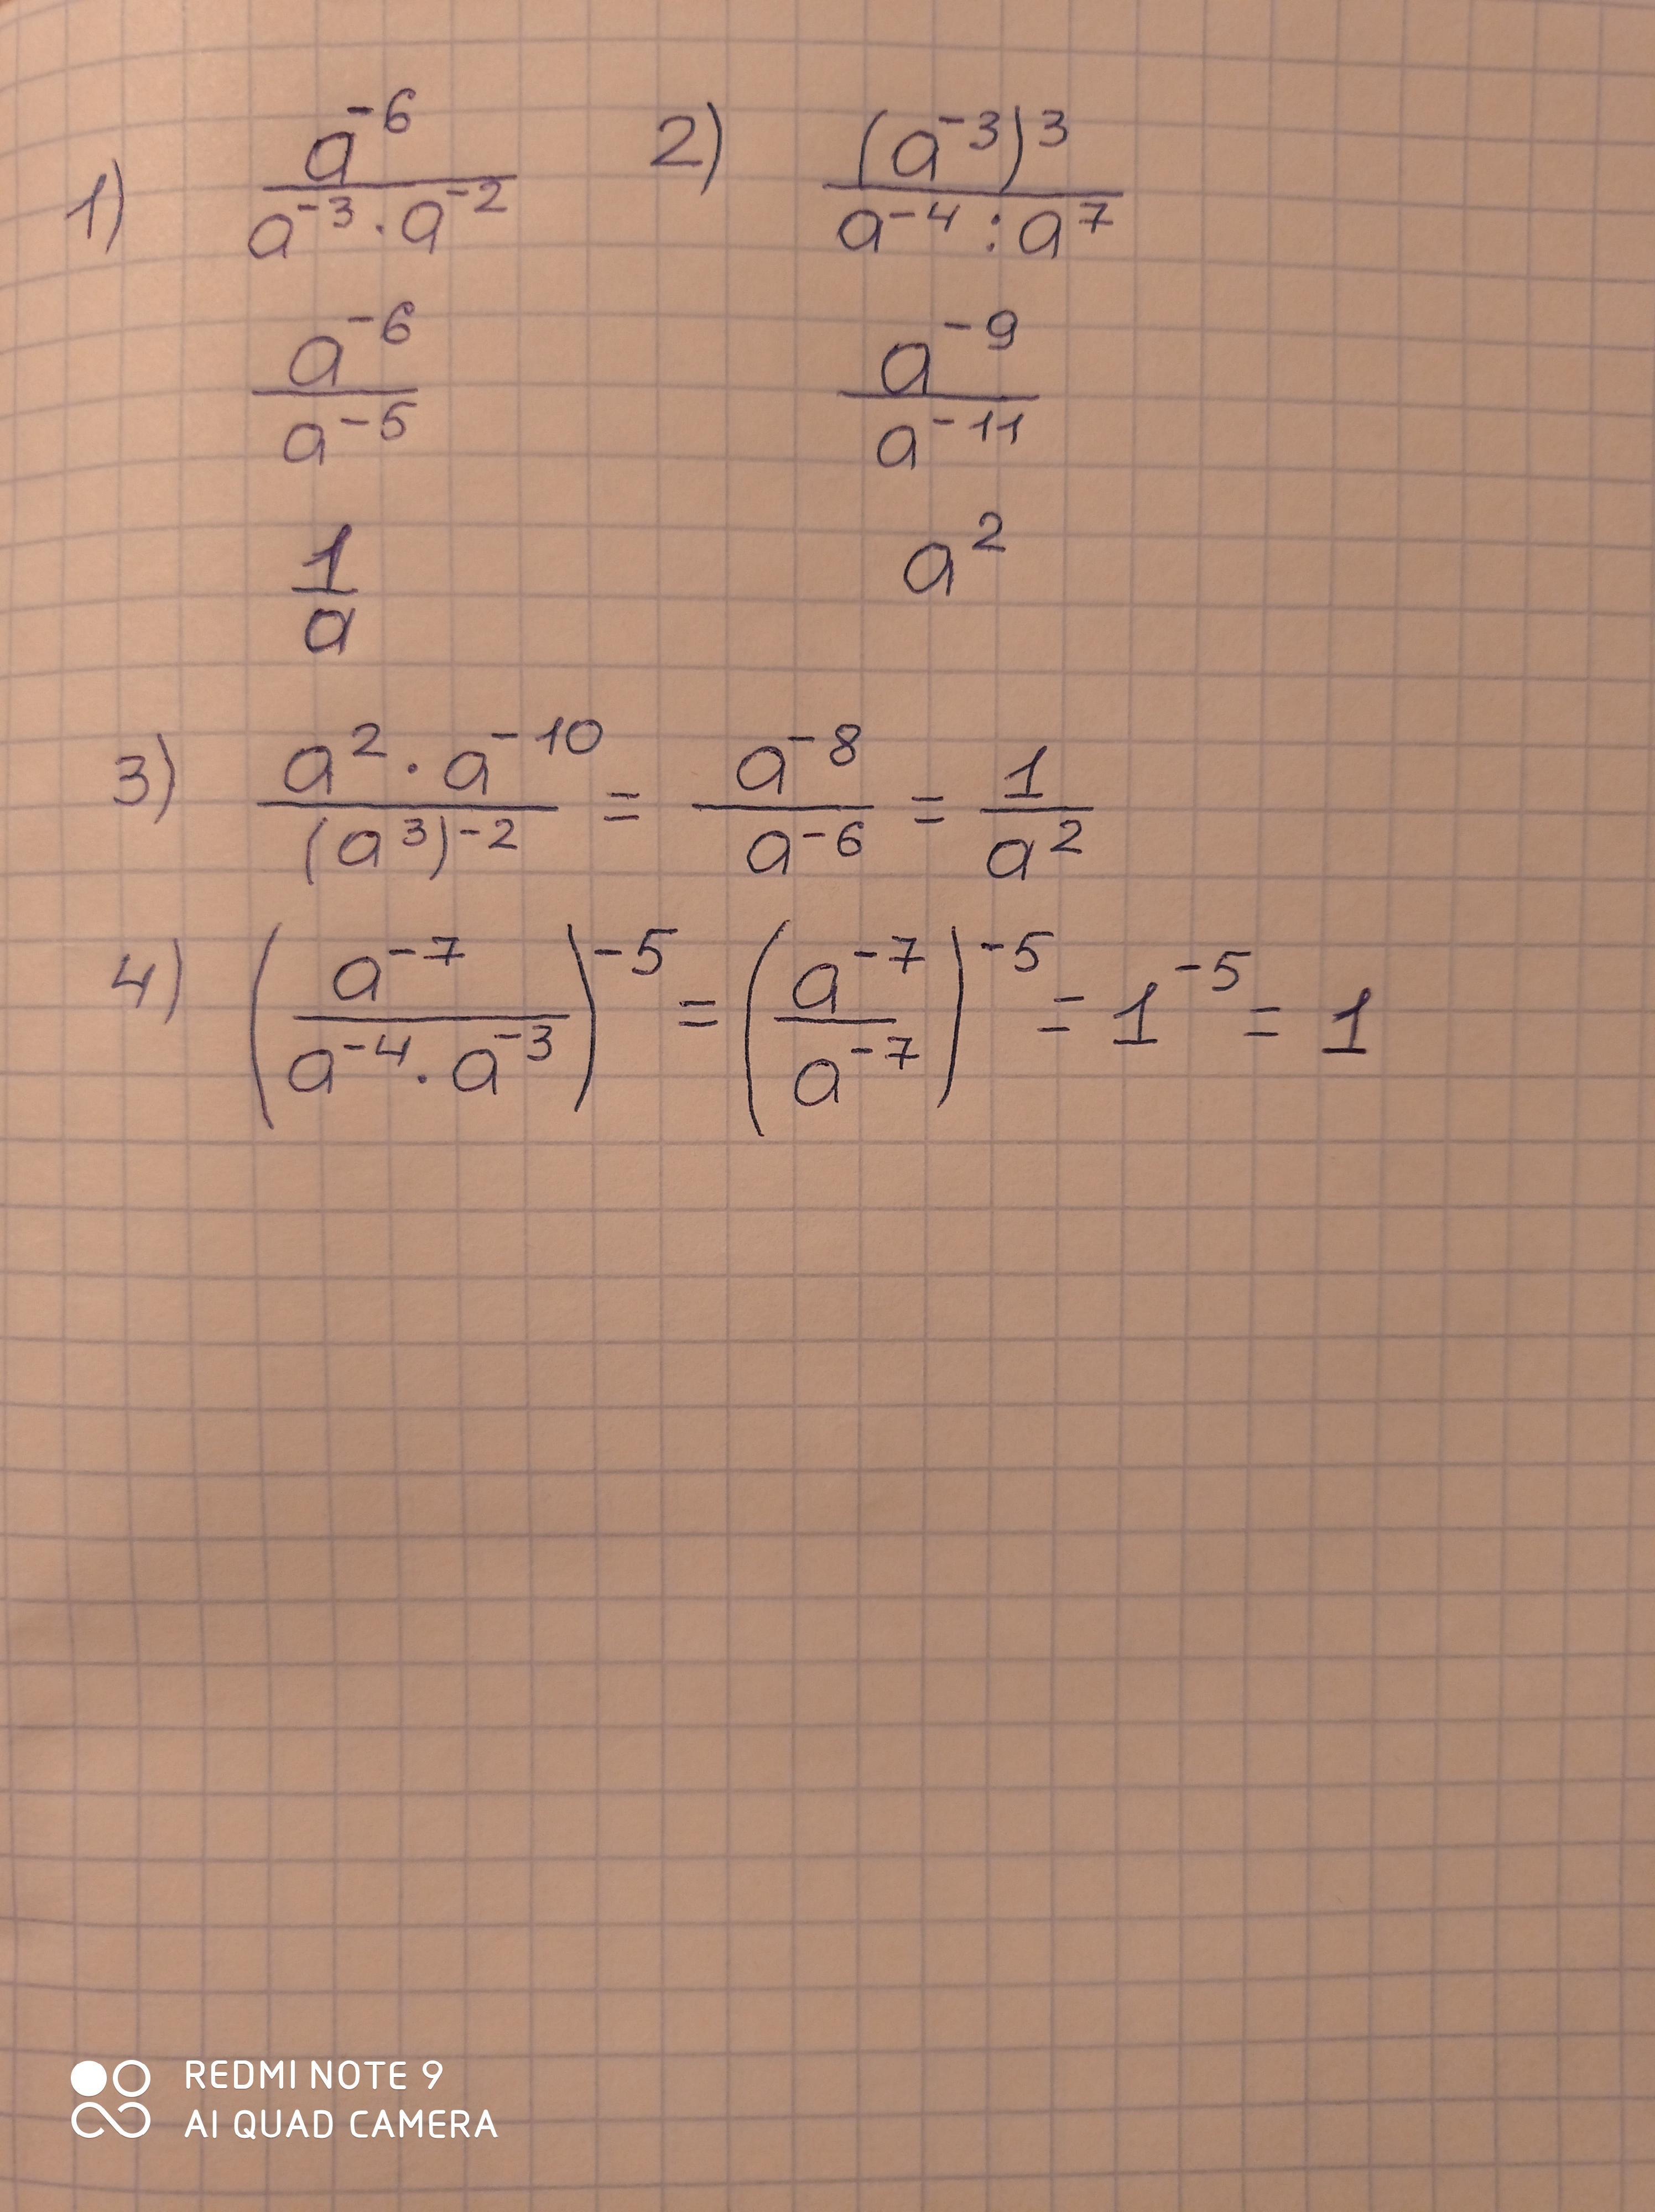 1) a⁻⁶ / (a⁻³ · a⁻²)
2) (a⁻³)³ / (a⁻⁴ : a⁷)
a⁻⁶ / a⁻⁵
a⁻⁹ / a⁻¹¹
1 / a
a²
3) (a² · a⁻¹⁰) / (a³)⁻² = a⁻⁸ / a⁻⁶ = 1 / a²
4) (a⁻⁷ / (a⁻⁴ · a⁻³))⁻⁵ = (a⁻⁷ / a⁻⁷)⁻⁵ = 1⁻⁵ = 1
REDMI NOTE 9
AI QUAD CAMERA